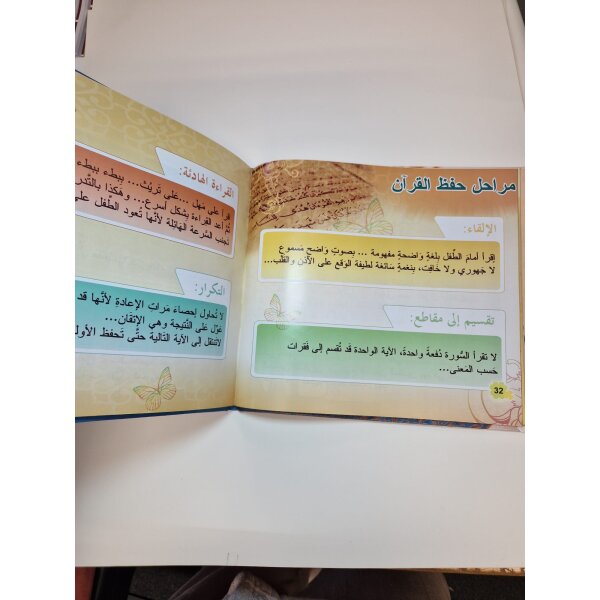 مراحل حفظ القرآن
الإلقاء:
اقرأ أمامَ الطِّفل بلغةٍ وَاضحةٍ مفهومة ... بِصوتٍ وَاضحٍ مَسموعٍ
لا جَهوري ولا خافِت، بنغمةٍ سَائغة لطيفة الوَقع على الأذن والقَلب...
تقسيم إلى مقاطع:
لا تقرأ السُّورة دُفعةً واحدة، الآية الواحدة قد تُقسم إلى فَقرات
حَسب المَعنى...
32
القراءة الهادئة:
اقرأ على مَهل ...على تَريُّث... ببطء ببطء
ثمَّ أعد القراءة بشكل أسرع... و هَكذا بالتَّدر
تجنب السُّرعة الهَائلة لأنَّها تُعود الطِّفل على
التكرار:
لا تُحاول إحصاءَ مَرات الإعادة لأنَّها قد
عَوِّل على النَّتيجة وهي الإتقان...
لا تنتقل إلى الآية التَّالية حتَّى تَحفظ الأولـ